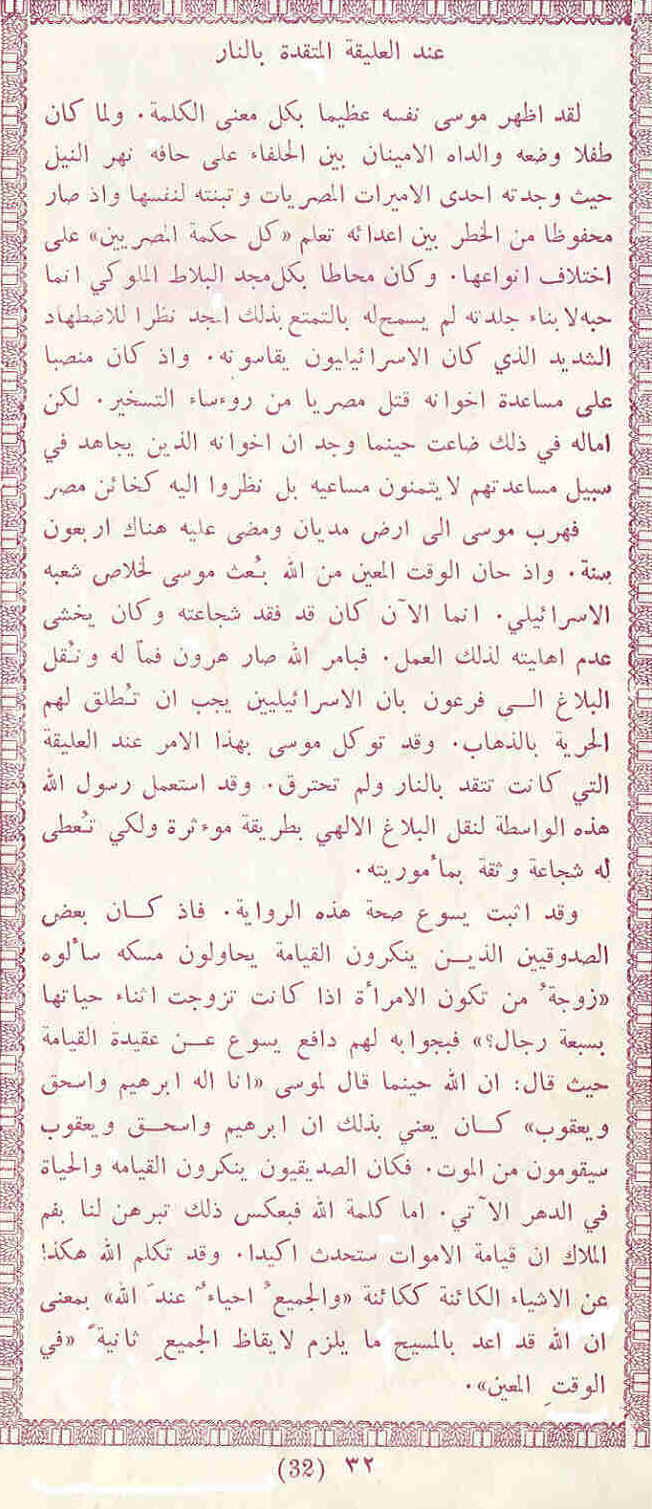 عند العليقة المتقدة بالنار
لقد اظهر موسى نفسه عظيما بكل معنى الكلمة. ولما كان
طفلا وضعه والداه الامينان بين الحلفاء على حافه نهر النيل
حيث وجدته احدى الاميرات المصريات وتبنته لنفسها واذ صار
محفوظا من الخطر بين اعدائه تعلم «كل حكمة المصريين» على
اختلاف انواعها. وكان محاطا بكل مجد البلاط الملوكي انما
حبه لابناء جلدته لم يسمح له بالتمتع بذلك المجد نظرا للاضطهاد
الشديد الذي كان الاسرائيليون يقاسونه. واذ كان منصبا
على مساعدة اخوانه قتل مصريا من روءساء التسخير. لكن
اماله في ذلك ضاعت حينما وجد ان اخوانه الذين يجاهد في
سبيل مساعدتهم لا يتمنون مساعيه بل نظروا اليه كخائن مصر
فهرب موسى الى ارض مديان ومضى عليه هناك اربعون
سنة. واذ حان الوقت المعين من الله بُعث موسى لخلاص شعبه
الاسرائيلي. انما الآن كان قد فقد شجاعته وكان يخشى
عدم اهليته لذلك العمل. فبامر الله صار هرون فماً له ونُقل
البلاغ الــى فرعون بان الاسرائيليين يجب ان تُطلق لهم
الحرية بالذهاب. وقد توكل موسى بهذا الامر عند العليقة
التي كانت تتقد بالنار ولم تحترق. وقد استعمل رسول الله
هذه الواسطة لنقل البلاغ الالهي بطريقة موءثرة ولكي تُعطى
له شجاعة وثقة بمأموريته.
وقد اثبت يسوع صحة هذه الرواية. فاذ كــان بعض
الصدوقيين الذيــن ينكرون القيامة يحاولون مسكه سألوه
«زوجةُ من تكون الامرأة اذا كانت تزوجت اثناء حياتها
بسبعة رجال؟» فبجوابه لهم دافع يسوع عــن عقيدة القيامة
حيث قال: ان الله حينما قال لموسى «انا اله ابرهيم واسحق
ويعقوب» كــان يعني بذلك ان ابرهيم واسحــق ويعقوب
سيقومون من الموت. فكان الصديقيون ينكرون القيامه والحياة
في الدهر الآتي. اما كلمة الله فبعكس ذلك تبرهن لنا بفم
الملاك ان قيامة الاموات ستحدث اكيدا. وقد تكلم الله هكذا
عن الاشياء الكائنة ككائنة «والجميعُ احياءٌ عندَ الله» بمعنى
ان الله قد اعد بالمسيح ما يلزم لايقاظ الجميعِ ثانيةً «في
الوقتِ المعين».
٣٢ (32)